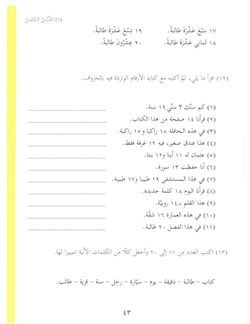 (٦) الدَّرْسُ السَّادِسُ
١٧ سَبْعَ عَشْرَةَ طَالِبَةً. ١٩ تِسْعَ عَشْرَةَ طَالِبَةً.
١٨ ثَمَانِيَ عَشْرَةَ طَالِبَةً. ٢٠ عِشْرُونَ طَالِبَةً.
(١٢) اقرأ ما يلي، ثمّ اكتبه مع كتابة الأرقام الواردة فيه بالحروف.
(١) كم سنّك ؟ سنّي ١٩ سنة.
(٢) قرأنا ١٤ صفحة من هذا الكتاب.
(٣) في هذه الحافلة ١٨ راكبا و ١٥ راكبة.
(٤) هذا فندق صغير، فيه ١٢ غرفة فقط.
(٥) عثمان له ١١ ابنا و١٢ بنتا.
(٦) أنا حفظت ١٣ سورة.
(٧) في هذا المستشفى ١٩ طبيبا و١٧ طبيبة.
(٨) قرأنا اليوم ١٨ كلمة جديدة.
(٩) هذا القلم بـ١٤ روبيّة.
(١٠) في هذه العمارة ١٦ شقّة.
(١١) في هذا الفصل ٢٠ طالبة.
(١٣) اكتب العدد من ١١ إلى ٢٠ واجعل كلًّا من الكلمات الآتية تمييزا لها.
كتاب – طالبة – دقيقة – يوم – سيّارة – رجل – سنة – قرية – طالب.
٤٣